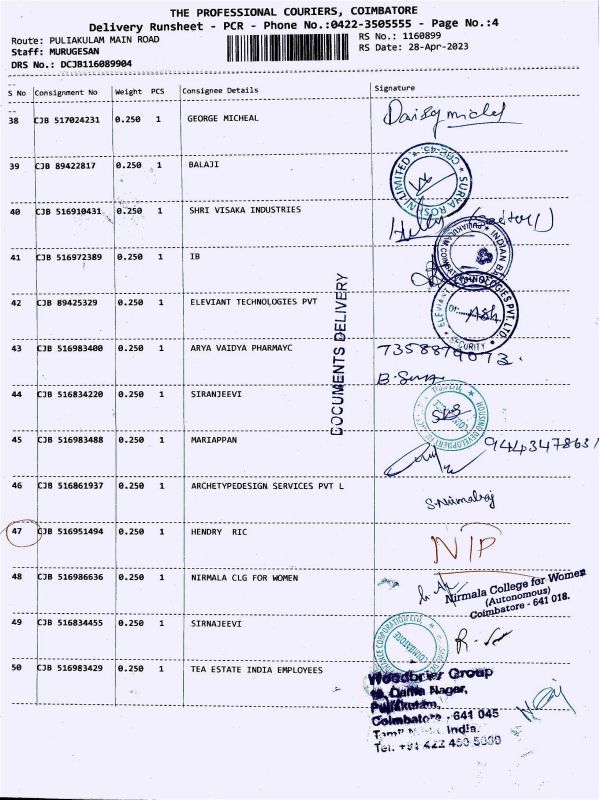 THE PROFESSIONAL COURIERS, COIMBATORE
Delivery Runsheet - PCR - Phone No.:0422-3505555 - Page No.:4
Route: PULIAKULAM MAIN ROAD
RS No.: 1160899
Staff: MURUGESAN
RS Date: 28-Apr-2023
DRS No.: DCJB116089904
S No Consignment No Weight PCS Consignee Details Signature
38 CJB 517024231 0.250 1 GEORGE MICHEAL Daisy michel
39 CJB 89422817 0.250 1 BALAJI
40 CJB 516910431 0.250 1 SHRI VISAKA INDUSTRIES
41 CJB 516972389 0.250 1 IB
42 CJB 89425329 0.250 1 ELEVIANT TECHNOLOGIES PVT
SECURITY
43 CJB 516983400 0.250 1 ARYA VAIDYA PHARMAYC
DOCUMENTS DELIVERY
44 CJB 516834220 0.250 1 SIRANJEEVI
45 CJB 516983488 0.250 1 MARIAPPAN
46 CJB 516861937 0.250 1 ARCHETYPEDESIGN SERVICES PVT L
S. Nirmalraj
47 CJB 516951494 0.250 1 HENDRY RIC NIP
48 CJB 516986636 0.250 1 NIRMALA CLG FOR WOMEN
Nirmala College for Women
(Autonomous)
Coimbatore - 641 018.
49 CJB 516834455 0.250 1 SIRNAJEEVI
COIMBATORE
50 CJB 516983429 0.250 1 TEA ESTATE INDIA EMPLOYEES
Woodbriar Group
Nagar,
Puliakulam,
Coimbatore - 641 045
India.